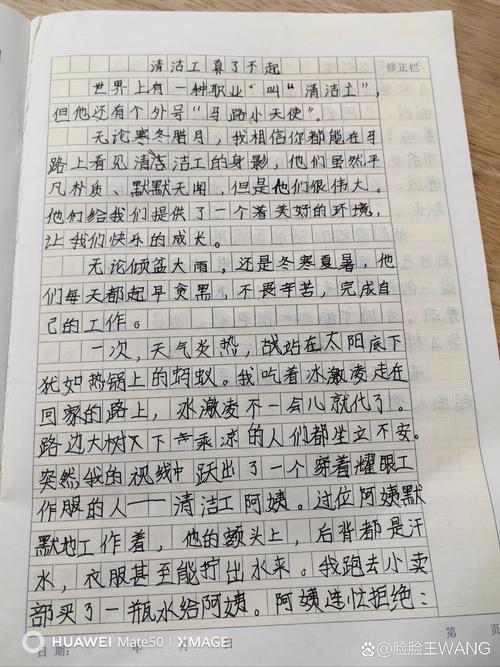 清洁工真了不起
修正栏
世界上有一种职业“叫“清洁工”,
但他还有个外号“马路小天使”.
无论寒冬腊月,我相信你都能在马
路上看见清洁工的身影,他们虽然平
凡朴质、默默无闻,但是他们很伟大。
他们给我们提供了一个着美好的环境,
让我们快乐的成长。
无论倾盆大雨,还是冬寒夏暑,他
们每天都起早贪黑,不畏辛苦,完成自
己的工作。
一次,天气炎热,战站在太阳底下
犹如热锅上的蚂蚁。我吃着冰激凌走在
回家的路上,冰激凌不一会儿就化了。
路边大树下乘凉的人们都坐立不安。
突然我的视线中跃出了一个穿着耀眼工
作服的人——清洁工阿姨。过位阿姨默
默地工作着,他的额头上,后背都是汗
水,衣服甚至能拧出水来。我跑去小卖
部买了一瓶水给阿姨。阿姨连忙拒绝:
日期: 年 日 第 页
HUAWEI Mate50 | XMAGE
@脸脸王WANG